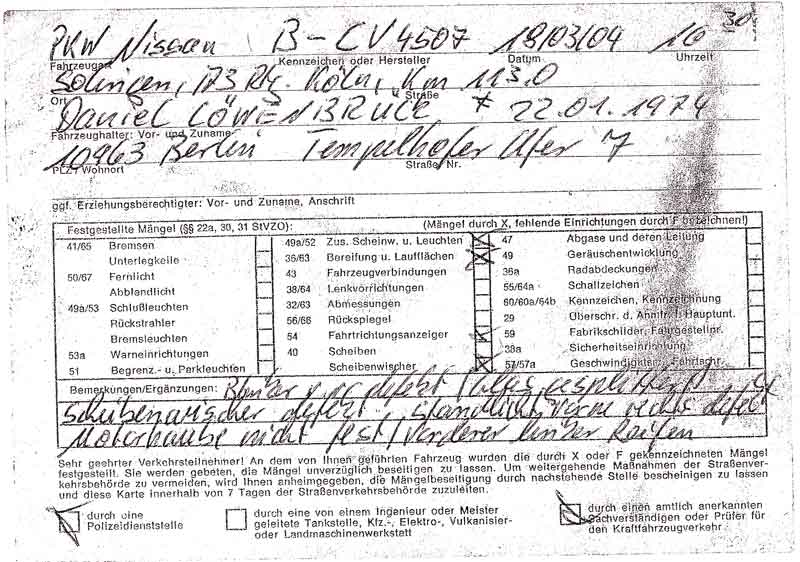 PKW Nissan B-CV4507 18/03/04 16 30
Fahrzeugart Kennzeichen oder Hersteller Datum Uhrzeit
Solingen, Köln, Km 113.0
Ort Straße
Daniel LÖWENBRÜCK * 22.01.1974
Fahrzeughalter: Vor- und Zuname
10963 Berlin Tempelhofer Ufer 7
PLZ / Wohnort Straße/Nr.
ggf. Erziehungsberechtigter: Vor- und Zuname, Anschrift
Festgestellte Mängel (§§ 22a, 30, 31 StVZO): (Mängel durch X, fehlende Einrichtungen durch F bezeichnen!)
41/65 Bremsen 49a/52 Zus. Scheinw. u. Leuchten X 47 Abgase und deren Leitung
Unterlegkeile 36/63 Bereifung u. Laufflächen X 49 Geräuschentwicklung
50/67 Fernlicht 43 Fahrzeugverbindungen 36a Radabdeckungen
Abblandlicht 38/64 Lenkvorrichtungen 55/64a Schallzeichen
49a/53 Schlußleuchten 32/63 Abmessungen 60/60a/64b Kennzeichen, Kennzeichnung
Rückstrahler 56/66 Rückspiegel 29 Überschr. d. Anmfr. f. Hauptunt.
Bremsleuchten 54 Fahrtrichtungsanzeiger X 59 Fabrikschilder, Fahrgestellnr.
53a Warneinrichtungen 40 Scheiben 38a Sicherheitseinrichtung
51 Begrenz.- u. Parkleuchten Scheibenwischer X 57/57a Geschwindigkts.- u. Fahrtschr.
Bemerkungen/Ergänzungen: Blinker defekt / Glas gesplittert
Scheibenwischer defekt, Standlicht vorne rechts defekt
Motorhaube nicht fest / Vorderer linker Reifen
Sehr geehrter Verkehrsteilnehmer! An dem von Ihnen geführten Fahrzeug wurden die durch X oder F gekennzeichneten Mängel
festgestellt. Sie werden gebeten, die Mängel unverzüglich beseitigen zu lassen. Um weitergehende Maßnahmen der Straßenver-
kehrsbehörde zu vermeiden, wird Ihnen anheimgegeben, die Mängelbeseitigung durch nachstehende Stelle bescheinigen zu lassen
und diese Karte innerhalb von 7 Tagen der Straßenverkehrsbehörde zuzuleiten.
X durch eine durch eine von einem Ingenieur oder Meister X durch einen amtlich anerkannten
Polizeidienststelle geleitete Tankstelle, Kfz.-, Elektro-, Vulkanisier- Sachverständigen oder Prüfer für
oder Landmaschinenwerkstatt den Kraftfahrzeugverkehr